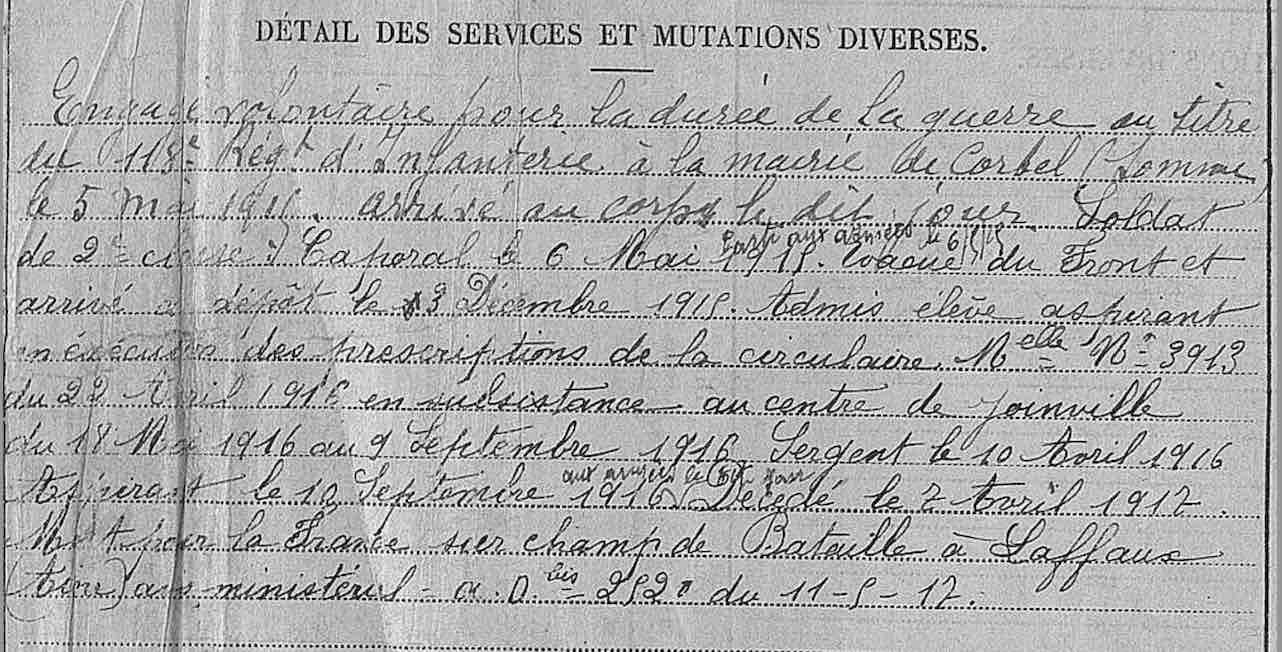 DÉTAIL DES SERVICES ET MUTATIONS DIVERSES.
Engagé volontaire pour la durée de la guerre au titre
du Régt d'Infanterie à la mairie de Corbel (Somme)
le 5 mai arrivé au corps le dit jour Soldat
Parti aux armées le
de 2e classe Caporal le 6 Mai 1915. Evacué du Front et
arrivé a dépôt le Décembre 1915. Admis élève aspirant
en exécution des prescriptions de la circulaire Melle No 3913
du 22 Avril 1916 en subsistance au centre de Joinville
du 18 Mai 1916 au 9 Septembre 1916 Sergent le 10 Avril 1916
aux armées le jour
Aspirant le 10 Septembre 1916 Décédé le 7 Avril 1917.
Mort pour la France sur champ de Bataille à Laffaux
(Aisne) avis ministériel - bis 2520 du 11-5-17.